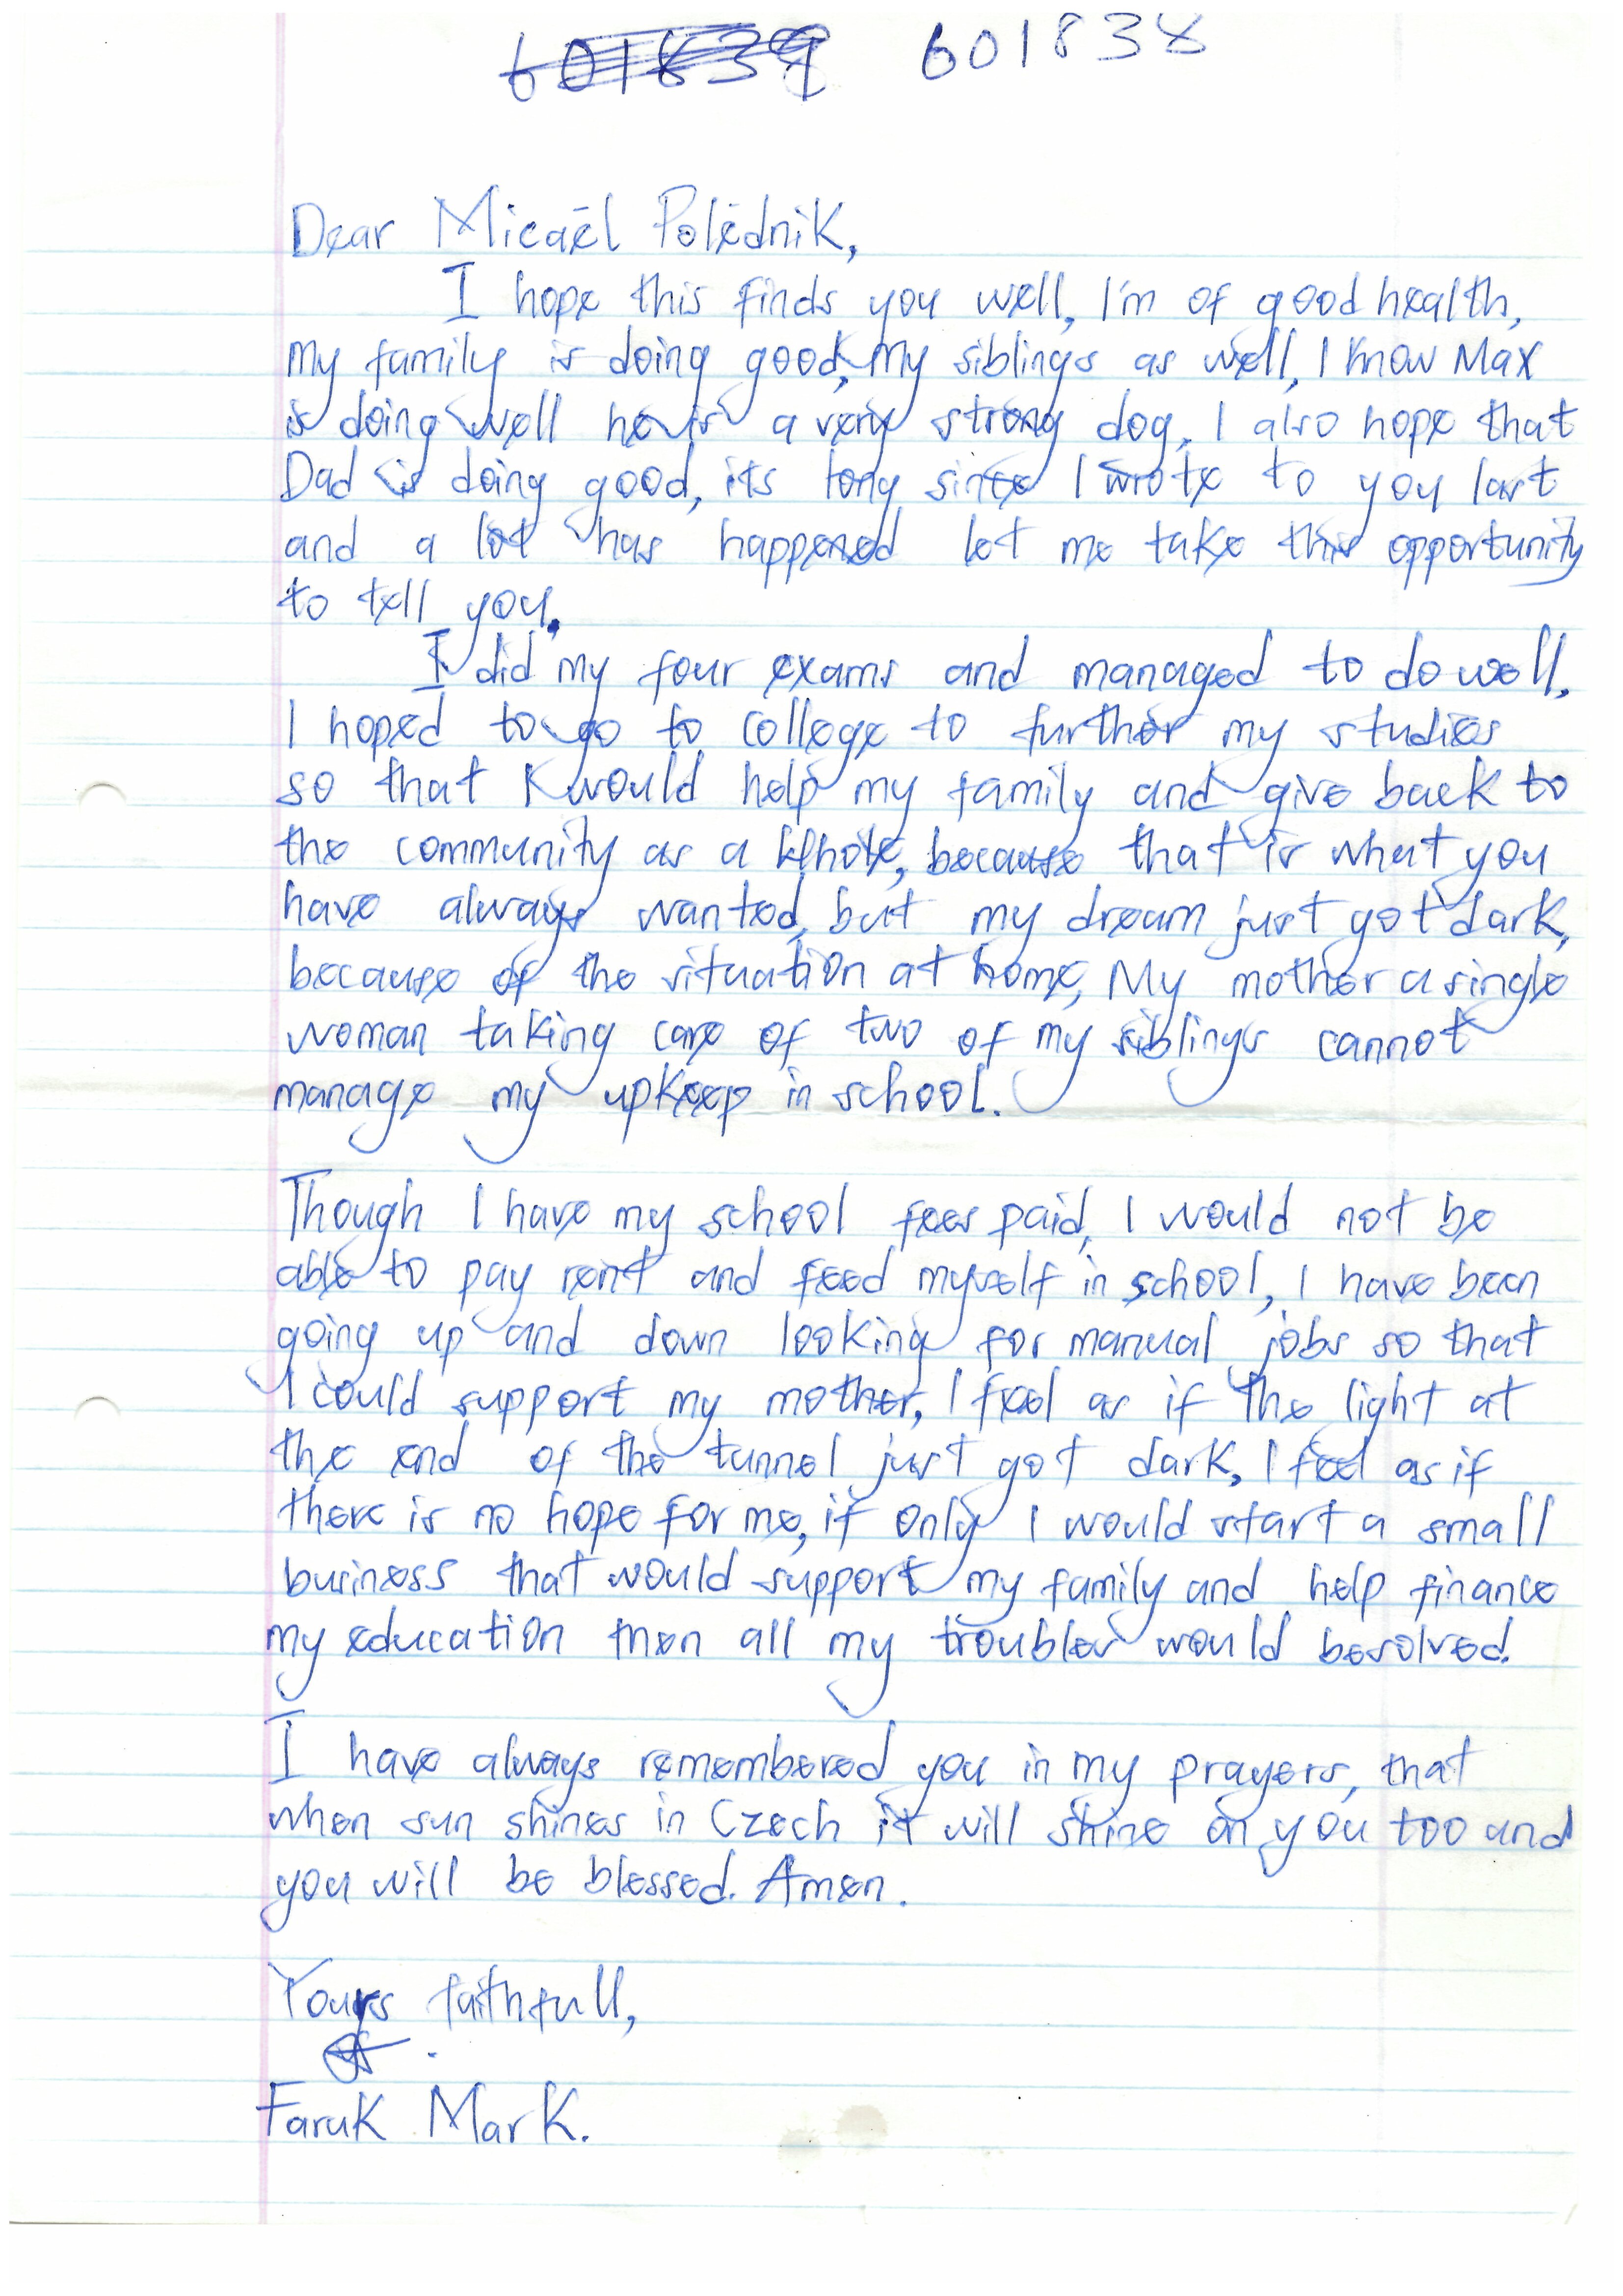 601839 601838
Dear Micaēl Polēdnik,
I hope this finds you well, I'm of good health,
my family is doing good, my siblings as well, I know Max
is doing well he is a very strong dog, I also hope that
Dad is doing good, its long since I wrote to you last
and a lot has happened let me take this opportunity
to tell you.
I did my four exams and managed to do well,
I hoped to go to college to further my studies
so that I would help my family and give back to
the community as a whole, because that is what you
have always wanted, but my dream just got dark,
because of the situation at home, My mother a single
woman taking care of two of my siblings cannot
manage my upkeep in school.
Though I have my school fees paid, I would not be
able to pay rent and feed myself in school, I have been
going up and down looking for manual jobs so that
I could support my mother, I feel as if the light at
the end of the tunnel just got dark, I feel as if
there is no hope for me, if only I would start a small
business that would support my family and help finance
my education then all my troubles would be solved.
I have always remembered you in my prayers, that
when sun shines in Czech it will shine on you too and
you will be blessed. Amen.
Yours faithfull,
Faruk Mark.